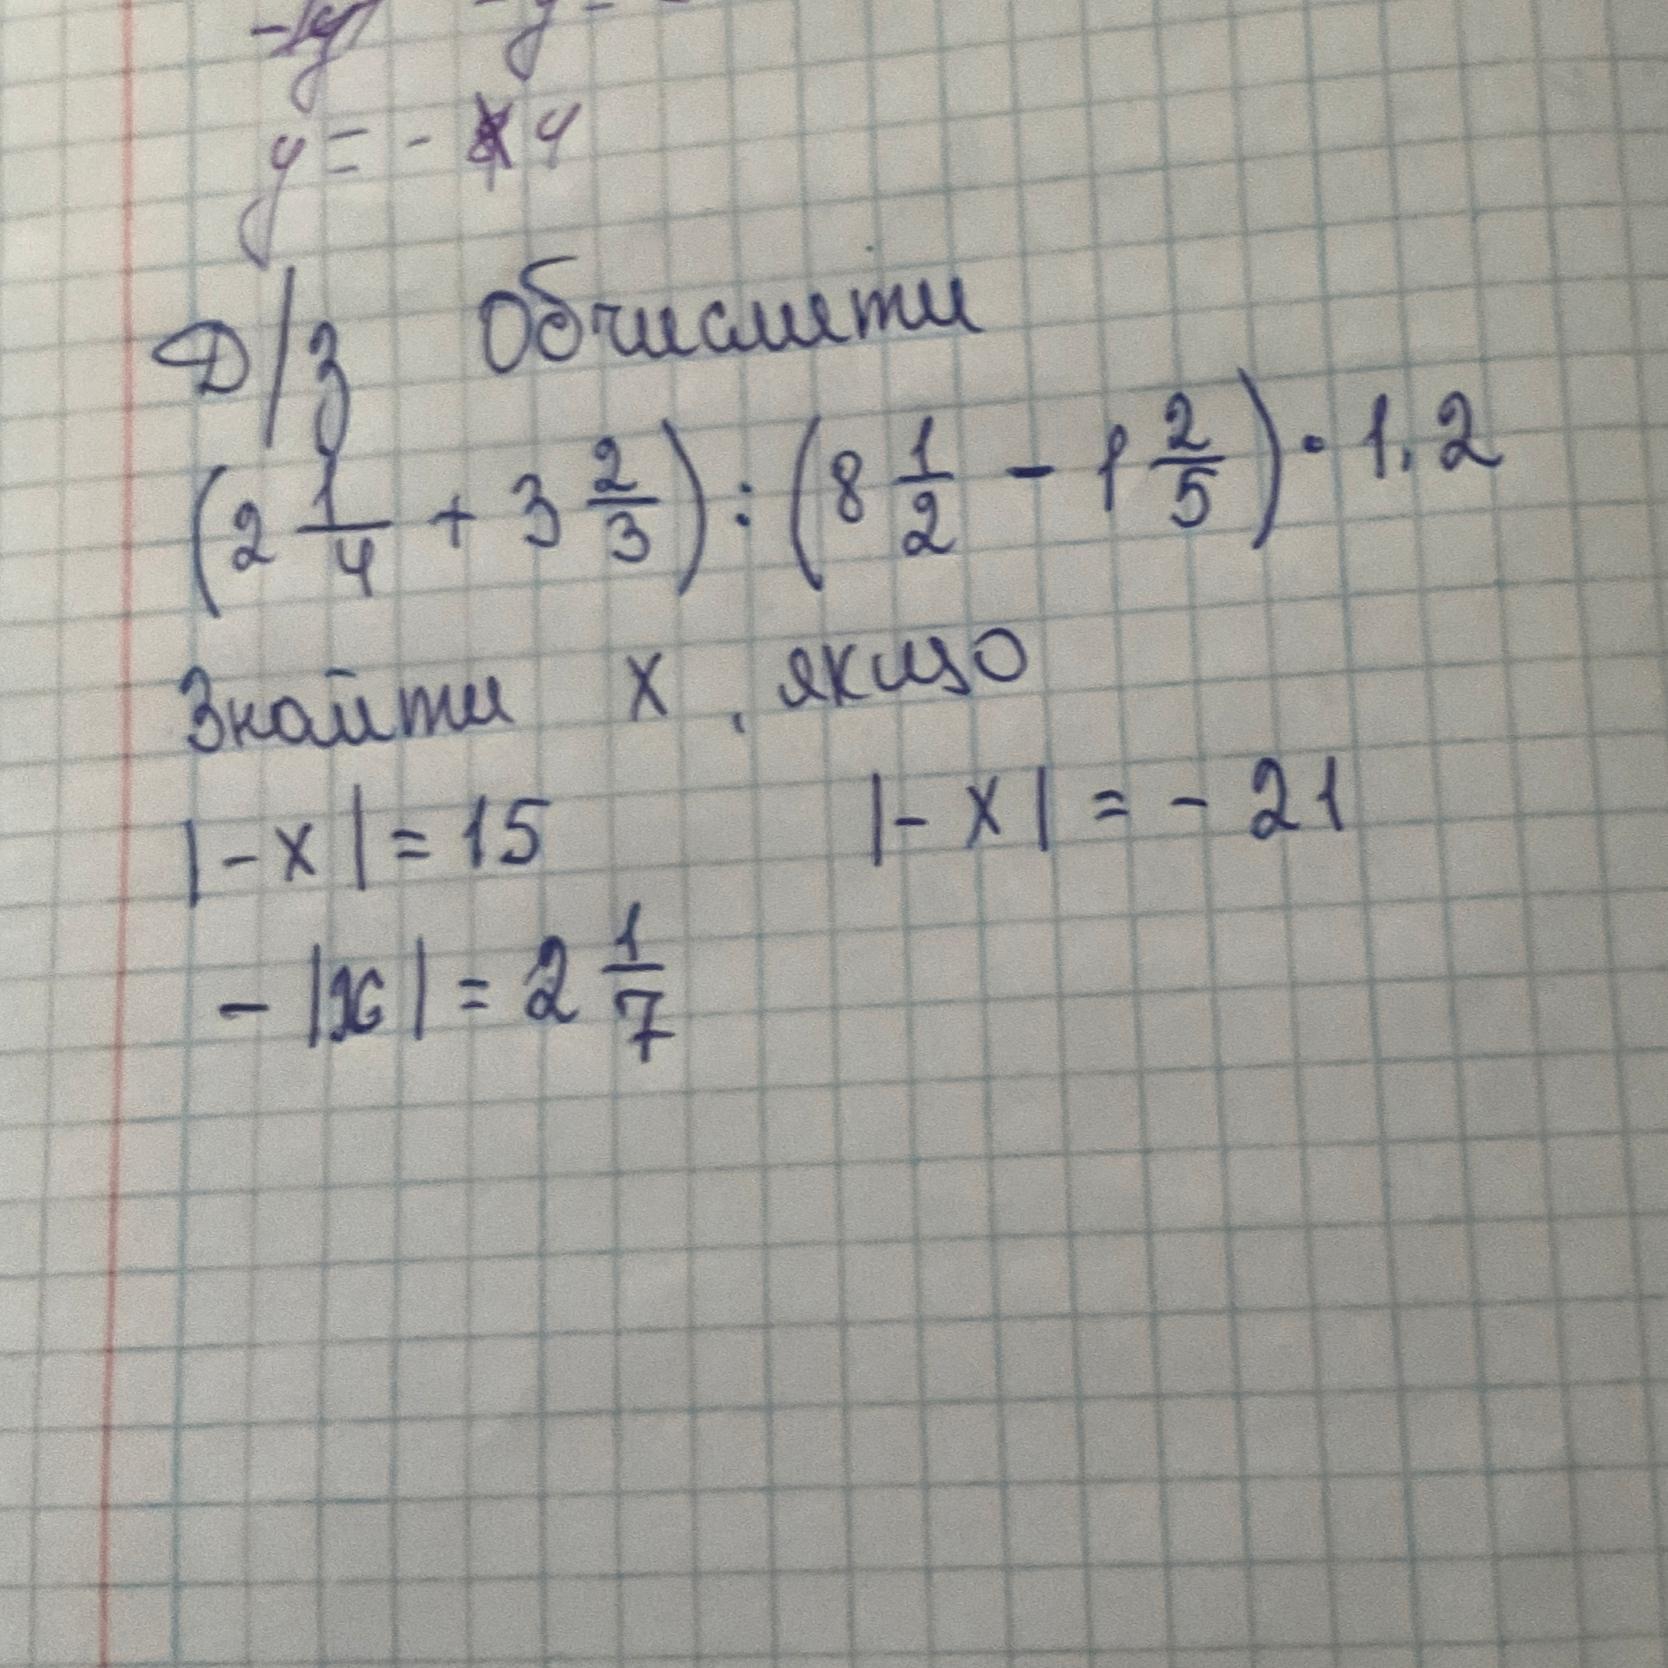 y = - 4
Д/З Обчислити
(2 1/4 + 3 2/3) : (8 1/2 - 1 2/5) · 1,2
Знайти x, якщо
|- x| = 15 |- x| = - 21
- |x| = 2 1/7